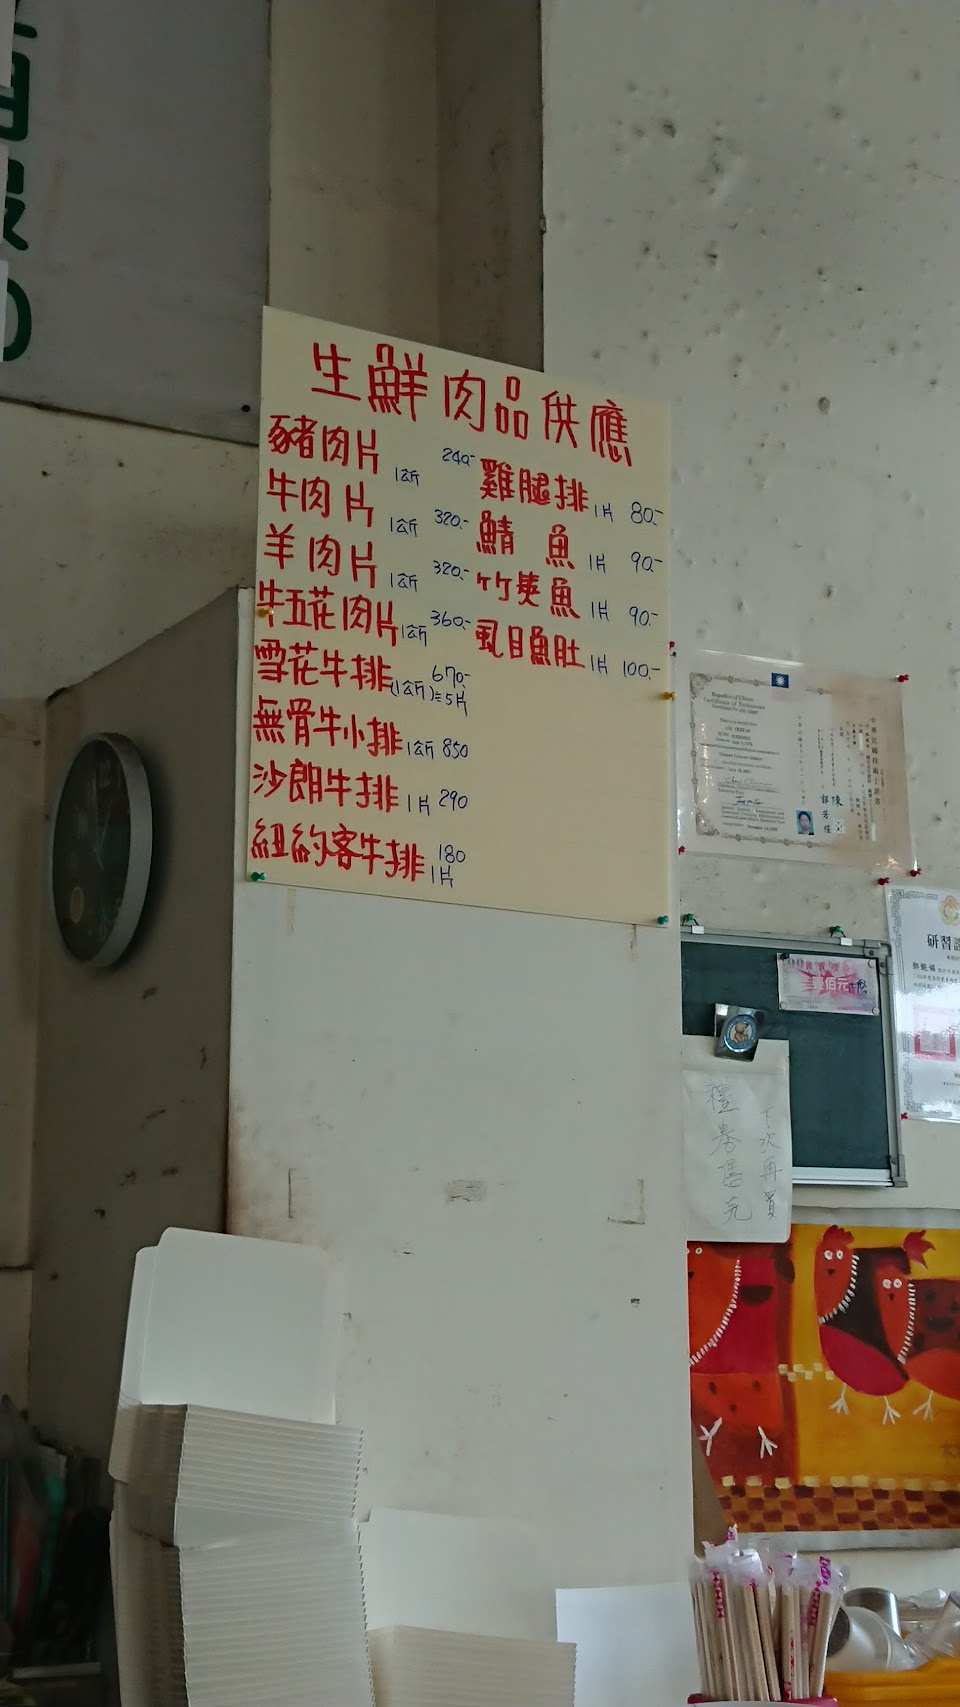 生鮮肉品供應
豬肉片 1公斤 240.-
牛肉片 1公斤 320.-
羊肉片 1公斤 320.-
牛五花肉片 1公斤 360.-
雪花牛排 (1公斤)≒5片 670.-
無骨牛小排 1公斤 850
沙朗牛排 1片 290
紐約客牛排 1片 180
雞腿排 1片 80.-
鯖魚 1片 90.-
竹筴魚 1片 90.-
虱目魚肚 1片 100.-
Republic of China
Certificate of Technician
中華民國技術士證書
研習證
壹佰元
禮券售完
下次再買